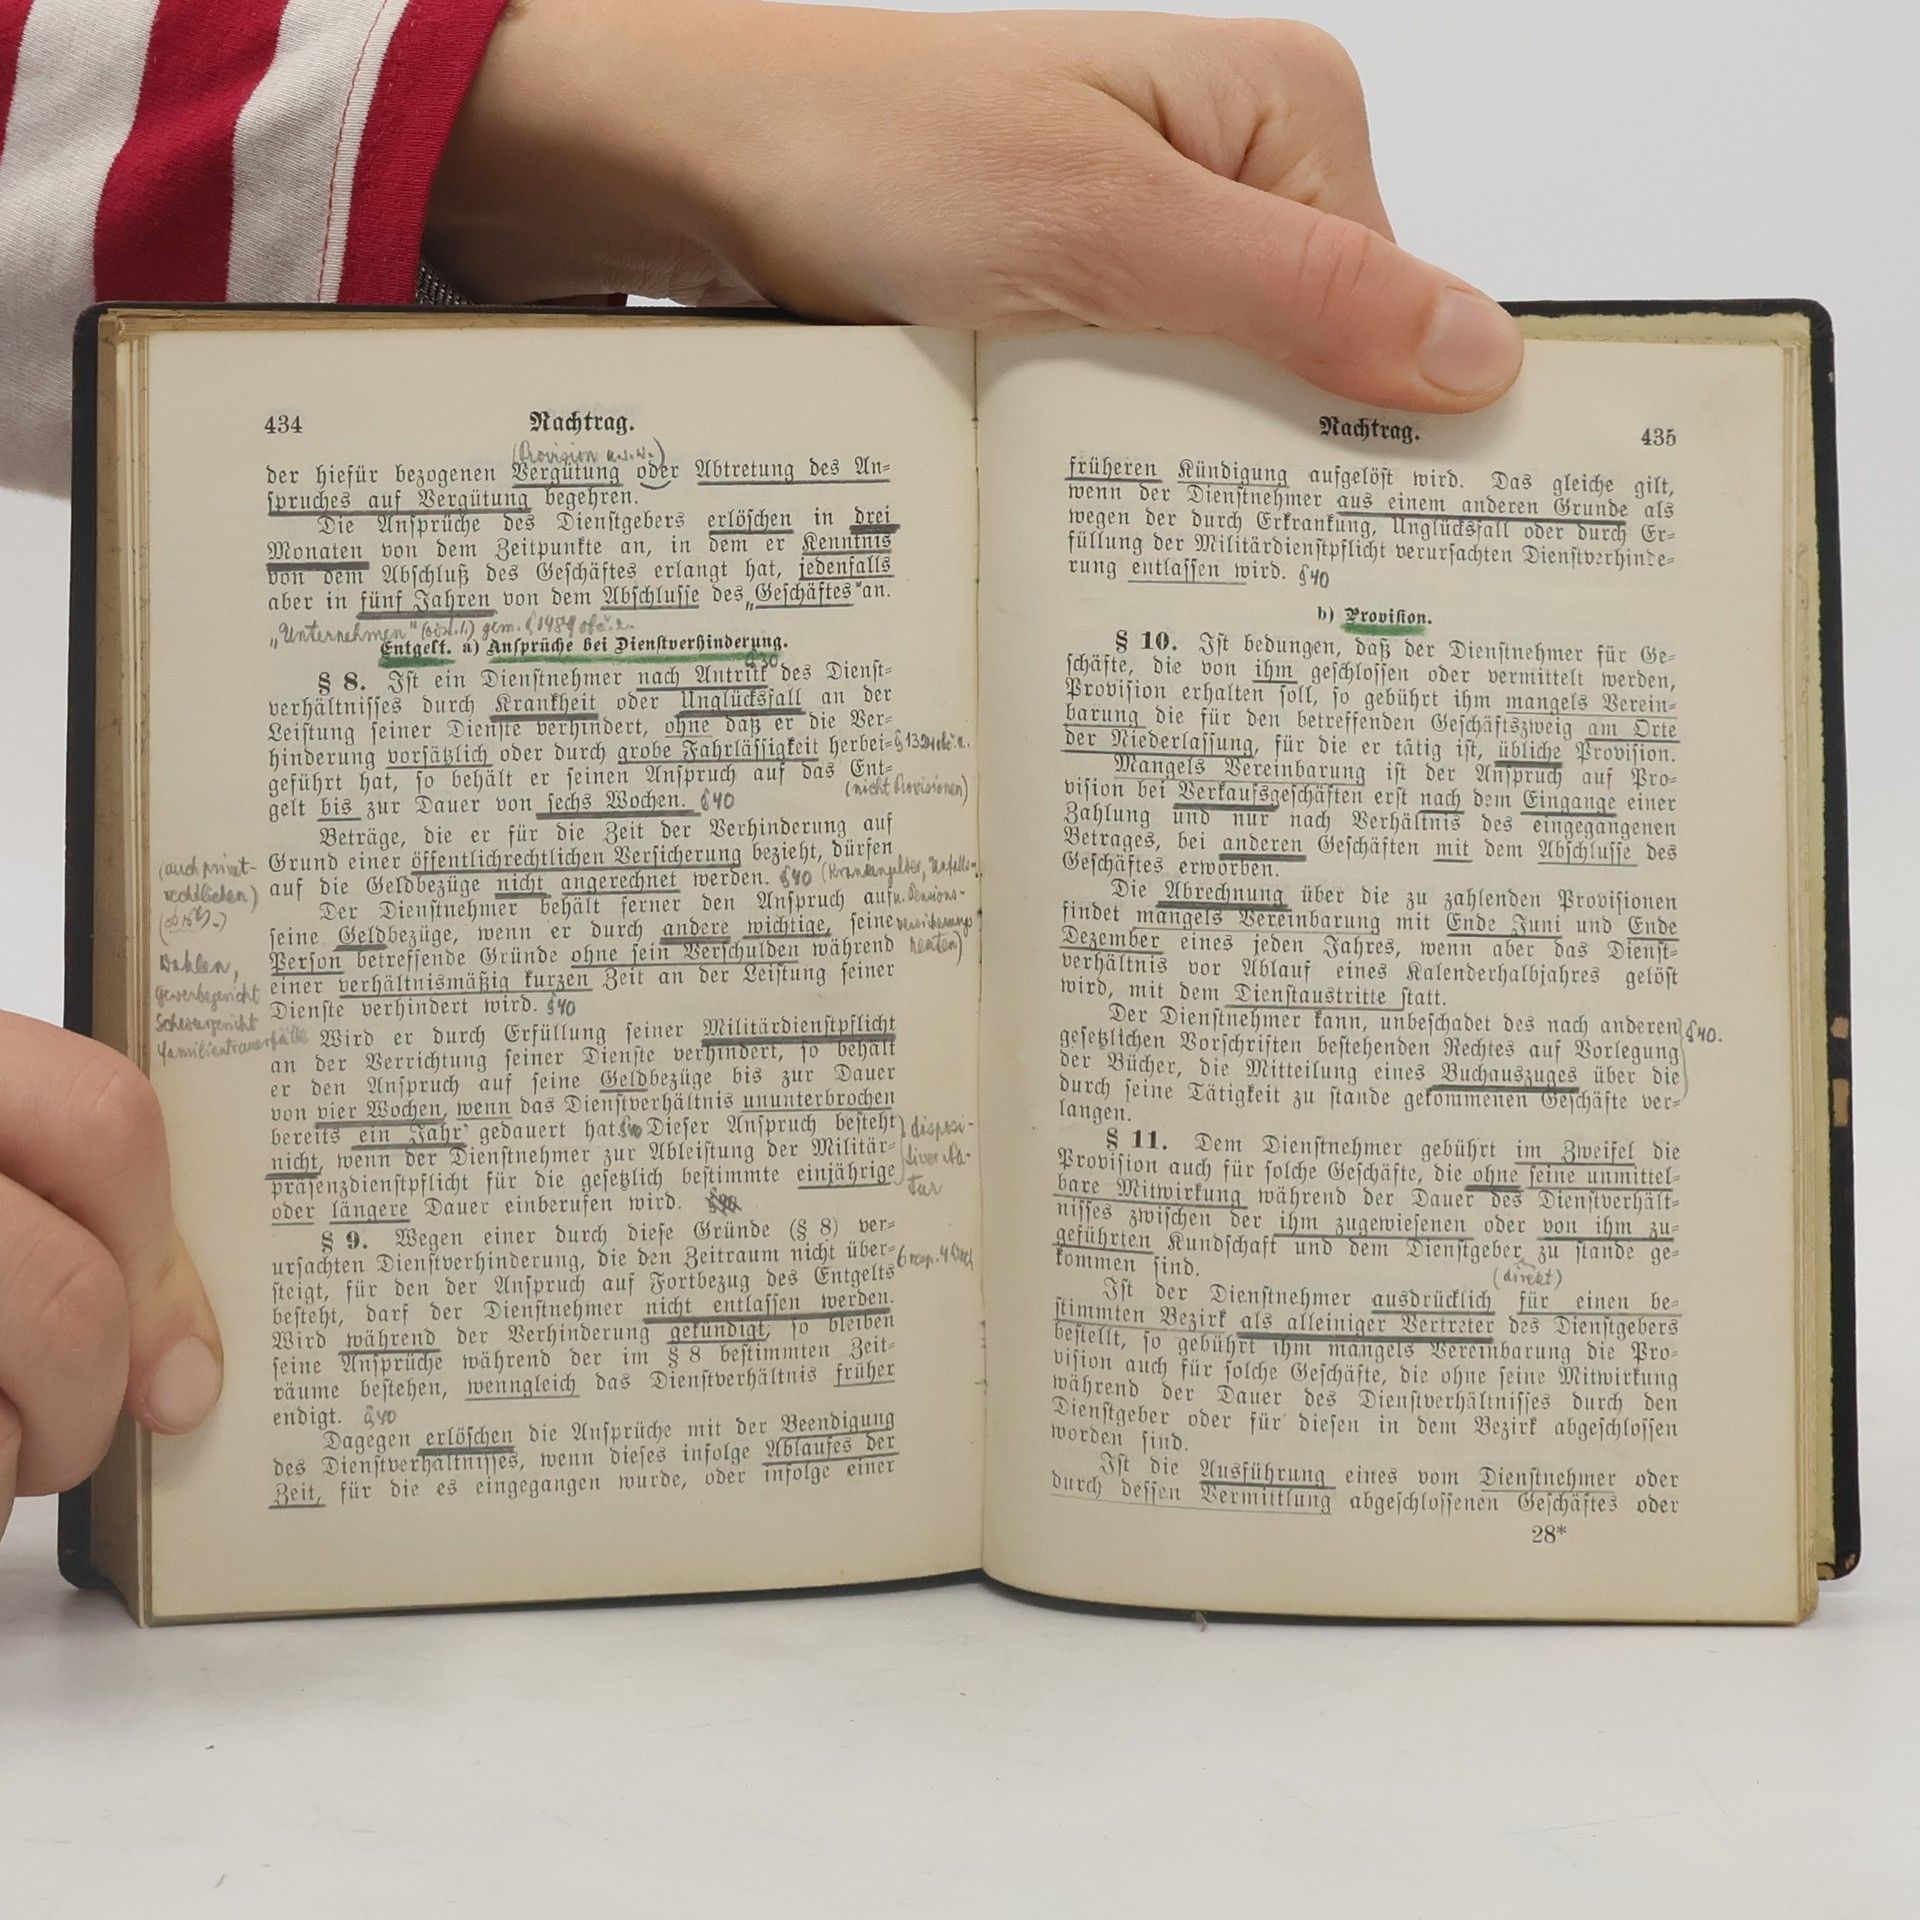 434
Nachtrag.
(Provision u.s.w.)
der hiefür bezogenen Vergütung oder Abtretung des An-
spruches auf Vergütung begehren.
Die Ansprüche des Dienstgebers erlöschen in drei
Monaten von dem Zeitpunkte an, in dem er Kenntnis
von dem Abschluß des Geschäftes erlangt hat, jedenfalls
aber in fünf Jahren von dem Abschlusse des „Geschäftes" an.
„Unternehmen" gem. §
Entgelt. a) Ansprüche bei Dienstverhinderung.
§ 8. Ist ein Dienstnehmer nach Antritt des Dienst-
verhältnisses durch Krankheit oder Unglücksfall an der
Leistung seiner Dienste verhindert, ohne daß er die Ver-
hinderung vorsätzlich oder durch grobe Fahrlässigkeit herbei-
geführt hat, so behält er seinen Anspruch auf das Ent-
(nicht Provisionen)
gelt bis zur Dauer von sechs Wochen. §40
Beträge, die er für die Zeit der Verhinderung auf
Grund einer öffentlichrechtlichen Versicherung bezieht, dürfen
auf die Geldbezüge nicht angerechnet werden. §40 (Krankengelder, Unfalls-
u. Pensions-
versicherungs
renten)
(auch privat-
rechtlichen)
Der Dienstnehmer behält ferner den Anspruch auf
seine Geldbezüge, wenn er durch andere wichtige, seine
Person betreffende Gründe ohne sein Verschulden während
einer verhältnismäßig kurzen Zeit an der Leistung seiner
Dienste verhindert wird. §40
Wahlen,
Gewerbegericht
Schwurgericht
Familientrauerfälle
Wird er durch Erfüllung seiner Militärdienstpflicht
an der Verrichtung seiner Dienste verhindert, so behält
er den Anspruch auf seine Geldbezüge bis zur Dauer
von vier Wochen, wenn das Dienstverhältnis ununterbrochen
bereits ein Jahr gedauert hat. §40 Dieser Anspruch besteht
nicht, wenn der Dienstnehmer zur Ableistung der Militär-
präsenzdienstpflicht für die gesetzlich bestimmte einjährige
oder längere Dauer einberufen wird.
disposi-
tiver Na-
tur
§ 9. Wegen einer durch diese Gründe (§ 8) ver-
ursachten Dienstverhinderung, die den Zeitraum nicht über-
6 resp. 4 Woch
steigt, für den der Anspruch auf Fortbezug des Entgelts
besteht, darf der Dienstnehmer nicht entlassen werden.
Wird während der Verhinderung gekündigt, so bleiben
seine Ansprüche während der im § 8 bestimmten Zeit-
räume bestehen, wenngleich das Dienstverhältnis früher
endigt. §40
Dagegen erlöschen die Ansprüche mit der Beendigung
des Dienstverhältnisses, wenn dieses infolge Ablaufes der
Zeit, für die es eingegangen wurde, oder infolge einer
Nachtrag.
435
früheren Kündigung aufgelöst wird. Das gleiche gilt,
wenn der Dienstnehmer aus einem anderen Grunde als
wegen der durch Erkrankung, Unglücksfall oder durch Er-
füllung der Militärdienstpflicht verursachten Dienstverhinde-
rung entlassen wird. §40
b) Provision.
§ 10. Ist bedungen, daß der Dienstnehmer für Ge-
schäfte, die von ihm geschlossen oder vermittelt werden,
Provision erhalten soll, so gebührt ihm mangels Verein-
barung die für den betreffenden Geschäftszweig am Orte
der Niederlassung, für die er tätig ist, übliche Provision.
Mangels Vereinbarung ist der Anspruch auf Pro-
vision bei Verkaufsgeschäften erst nach dem Eingange einer
Zahlung und nur nach Verhältnis des eingegangenen
Betrages, bei anderen Geschäften mit dem Abschlusse des
Geschäftes erworben.
Die Abrechnung über die zu zahlenden Provisionen
findet mangels Vereinbarung mit Ende Juni und Ende
Dezember eines jeden Jahres, wenn aber das Dienst-
verhältnis vor Ablauf eines Kalenderhalbjahres gelöst
wird, mit dem Dienstaustritte statt.
Der Dienstnehmer kann, unbeschadet des nach anderen
gesetzlichen Vorschriften bestehenden Rechtes auf Vorlegung
der Bücher, die Mitteilung eines Buchauszuges über die
durch seine Tätigkeit zu stande gekommenen Geschäfte ver-
langen.
§40.
§ 11. Dem Dienstnehmer gebührt im Zweifel die
Provision auch für solche Geschäfte, die ohne seine unmittel-
bare Mitwirkung während der Dauer des Dienstverhält-
nisses zwischen der ihm zugewiesenen oder von ihm zu-
geführten Kundschaft und dem Dienstgeber zu stande ge-
kommen sind.
(direkt)
Ist der Dienstnehmer ausdrücklich für einen be-
stimmten Bezirk als alleiniger Vertreter des Dienstgebers
bestellt, so gebührt ihm mangels Vereinbarung die Pro-
vision auch für solche Geschäfte, die ohne seine Mitwirkung
während der Dauer des Dienstverhältnisses durch den
Dienstgeber oder für diesen in dem Bezirk abgeschlossen
worden sind.
Ist die Ausführung eines vom Dienstnehmer oder
durch dessen Vermittlung abgeschlossenen Geschäftes oder
28*